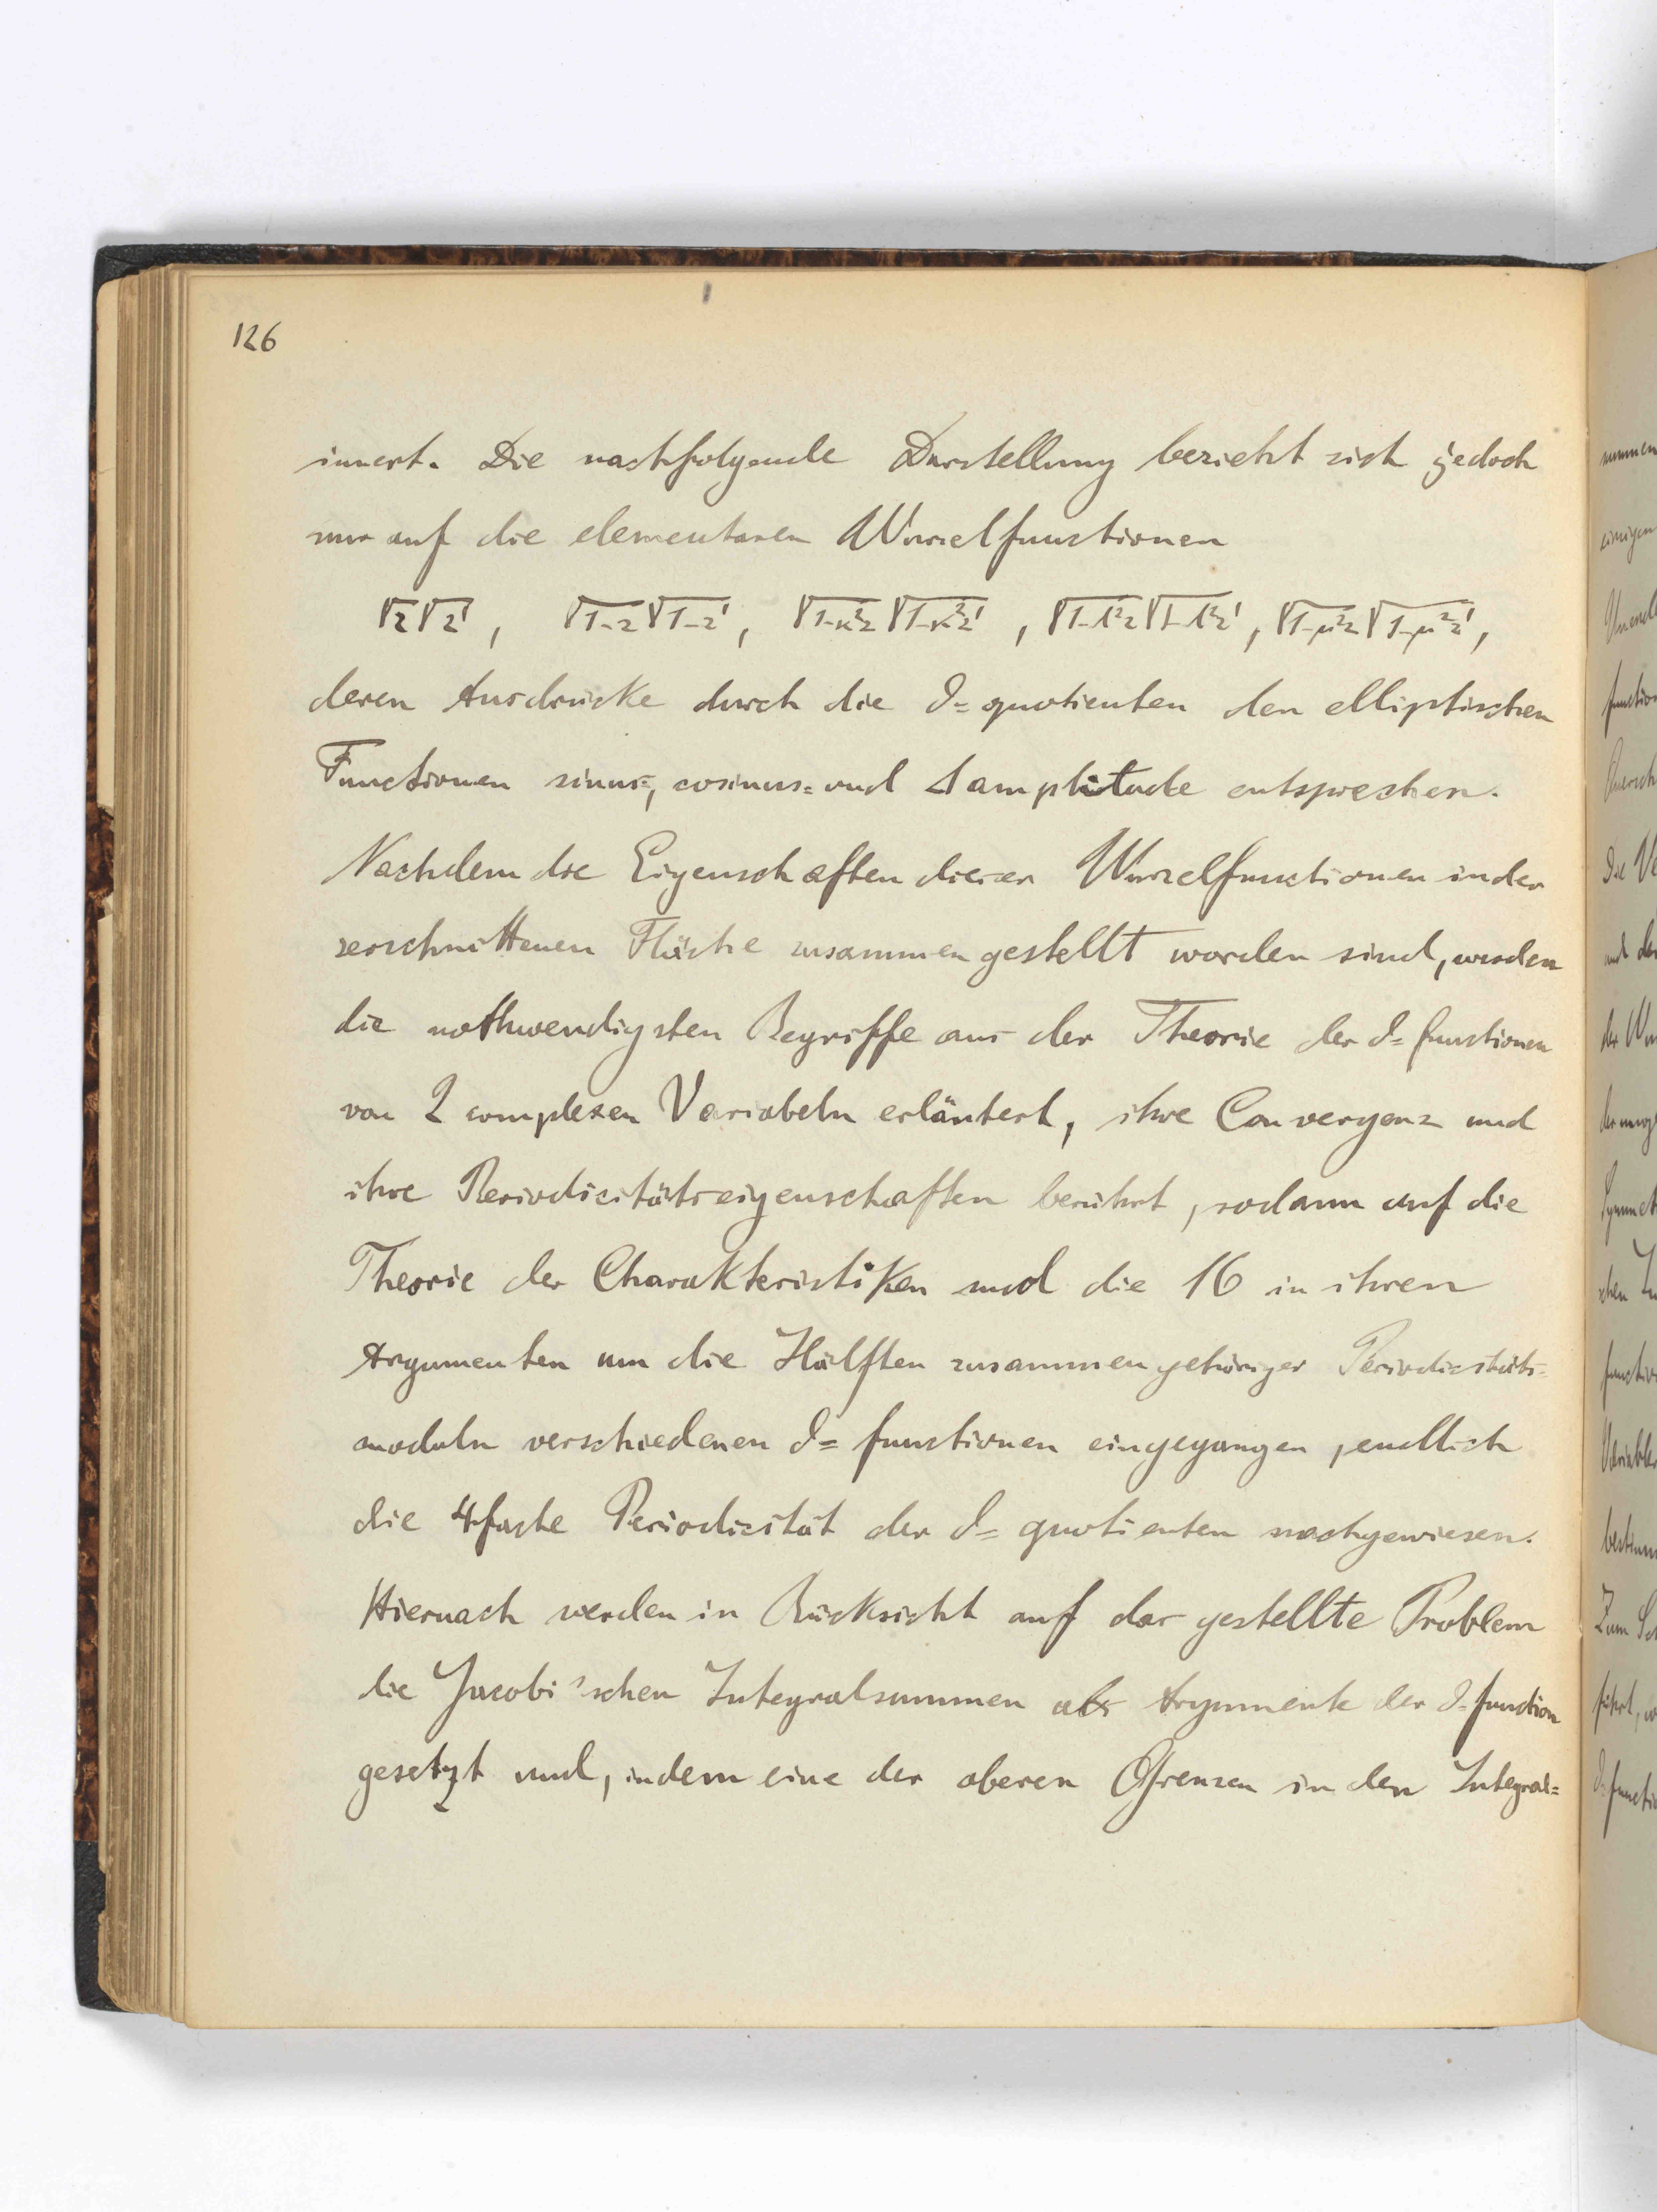 126
innert. Die nachfolgende Darstellung bezieht sich jedoch
nur auf die elementaren Wurzelfunctionen
√z√z', √1-z√1-z', √1-κ²z√1-κ²z', √1-λ²z√1-λ²z', √1-μ²z√1-μ²z',
deren Ausdrücke durch die ϑ=quotienten den elliptischen
Functionen sinus=, cosinus= und Δamplitude entsprechen.
Nachdem die Eigenschaften dieser Wurzelfunctionen in der
zerschnittenen Fläche zusammengestellt worden sind, werden
die nothwendigsten Begriffe aus der Theorie der ϑ=functionen
von 2 complexen Variabeln erläutert, ihre Convergenz und
ihre Periodicitätseigenschaften berührt, sodann auf die
Theorie der Charakteristiken und die 16 in ihren
Argumenten um die Hälften zusammengehöriger Periodicitäts=
moduln verschiedenen ϑ=functionen eingegangen, endlich
die 4fache Periodicität der ϑ=quotienten nachgewiesen.
Hiernach werden in Rücksicht auf das gestellte Problem
die Jacobi'schen Integralsummen als Argumente der ϑ=function
gesetzt und, indem eine der oberen Grenzen in den Integral=